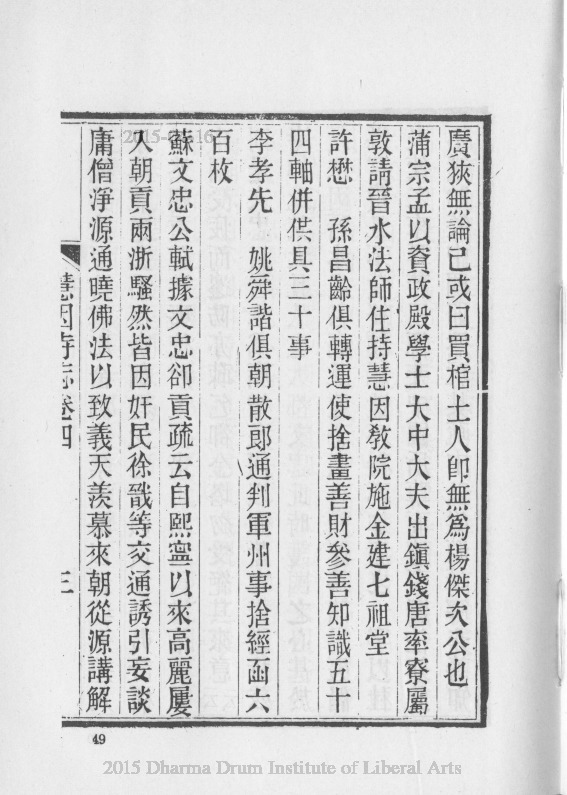 廣狹無論已或曰買棺士人卽無爲楊傑次公也
蒲宗孟以資政殿學士大中大夫出鎮錢唐率寮屬
敦請晉水法師住持慧因敎院施金建七祖堂
許懋　孫昌齡俱轉運使捨畫善財參善知識五十
四軸併供具三十事
李孝先　姚舜諧俱朝散郎通判軍州事捨經函六
百枚
蘇文忠公軾據文忠卻貢疏云自熙寧以來高麗屢
入朝貢兩浙騷然皆因奸民徐戩等交通誘引妄談
庸僧淨源通曉佛法以致義天羨慕來朝從源講解
慧因寺志卷四
三
49
2015 Dharma Drum Institute of Liberal Arts